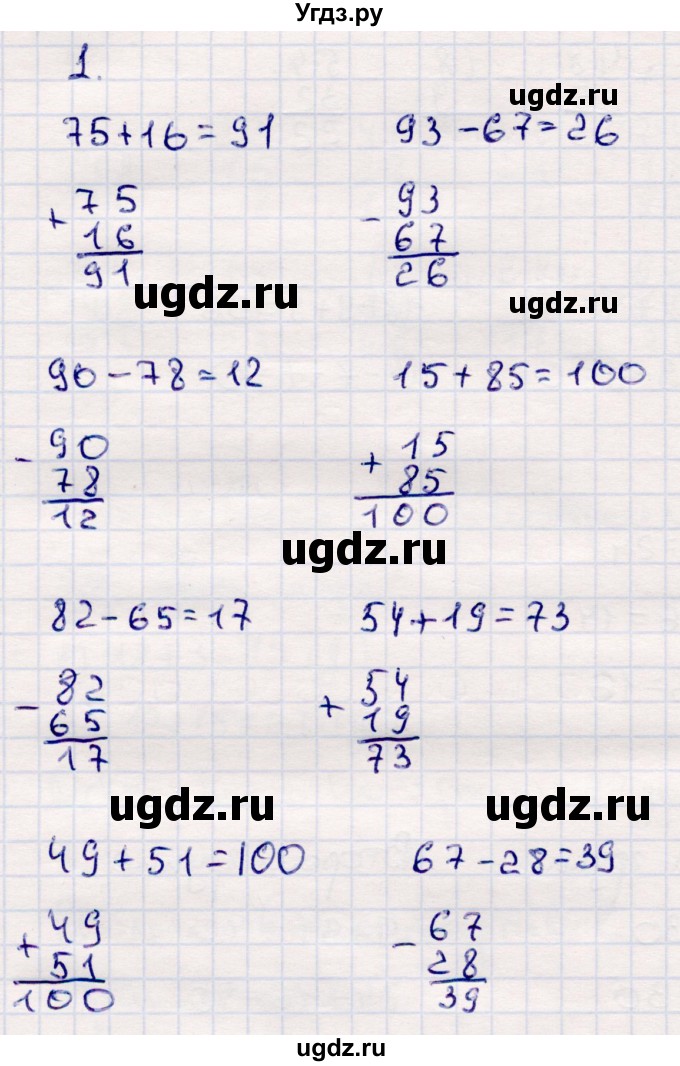 Угдз.ру
1.
ugdz.ru
75+16=91
93-67=26
+ 75
16
91
- 93
67
26
ugdz.ru
ugdz.ru
90-78=12
15+85=100
- 90
78
12
+ 15
85
100
ugdz.ru
82-65=17
54+19=73
- 82
65
17
+ 54
19
73
ugdz.ru
ugdz.ru
49+51=100
67-28=39
+ 49
51
100
- 67
28
39
ugdz.ru